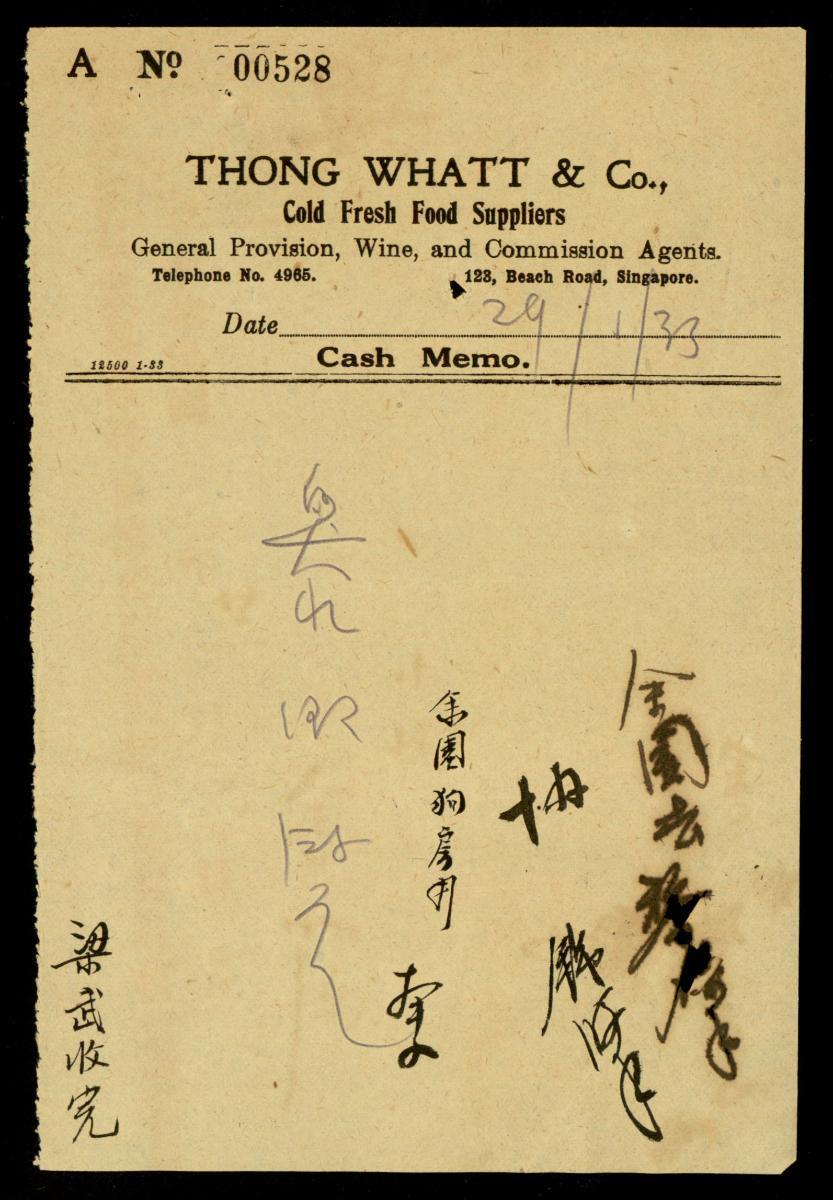 A No 00528
THONG WHATT & Co.,
Cold Fresh Food Suppliers
General Provision, Wine, and Commission Agents.
Telephone No. 4965. 123, Beach Road, Singapore.
Date 29/1/33
12500 1-33
Cash Memo.
余園
余園狗房用
梁武收完